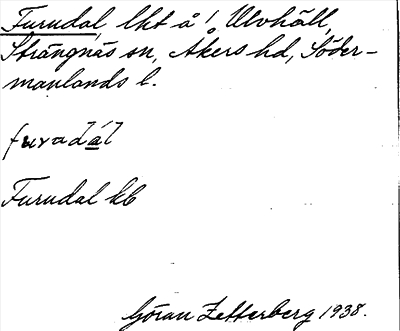 Furudal, lht å ! Ulvhäll,
Strängnäs sn, Åkers hd, Söder-
manlands l.
furudál
Furudal kb
Göran Zetterberg 1938.